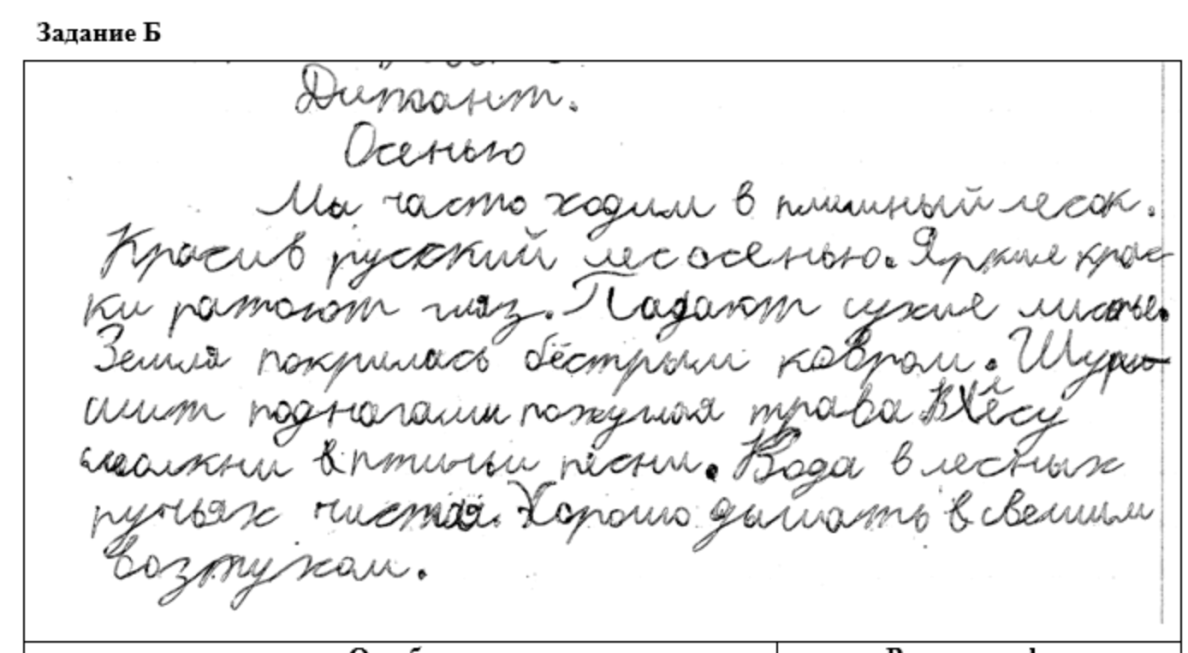 Задание Б
Диктант.
Осенью
Мы часто ходим в пмишный лесок.
Красив русский лес осенью. Яркие крас-
ки ратают глаз. Падают сухие листье.
Земля покрилась бёстрым ковром. Шур-
шит под нагами пожуглая трава В лесу
смолкни птичьи песни. Вода в лесных
ручьях чистая. Хорошо дышать в свешим
возтухом.